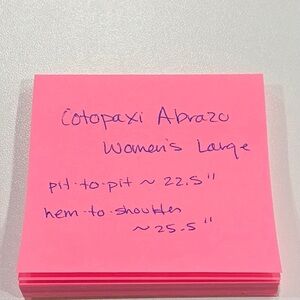 Cotopaxi Abrazo
Women's Large
pit-to-pit ~ 22.5"
hem-to-shoulder
~25.5"